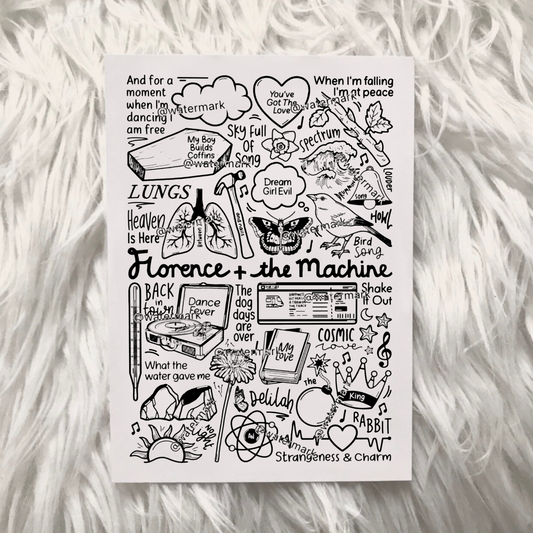 And for a
moment
when I'm
dancing I
am free
@watermark
You've
Got The
Love
When I'm falling
I'm at peace
@watermark
My Boy
Builds
Coffins
@watermark
Sky Full
Of
Song
Spectrum
LUNGS
Dream
Girl Evil
Heaven
Is Here
Between
HOWL
Bird
Song
Florence + the Machine
BACK
in
town
Dance
Fever
@watermark
The
dog
days
are
over
Shake
It Out
My
Love
COSMIC
Love
What the
water gave me
Delilah
The
King
RABBIT
HEART
Strangeness & Charm